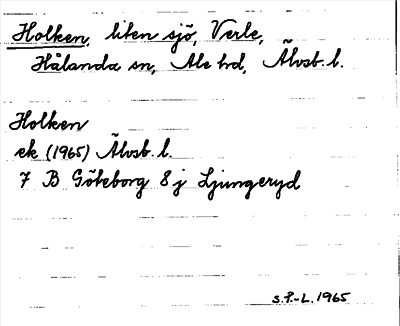 Holken, liten sjö, Verle,
Hålanda sn, Ale hd, Älvsb. l.
Holken
ek (1965) Älvsb. l.
7 B Göteborg 8 j Ljungeryd
S.P.-L. 1965